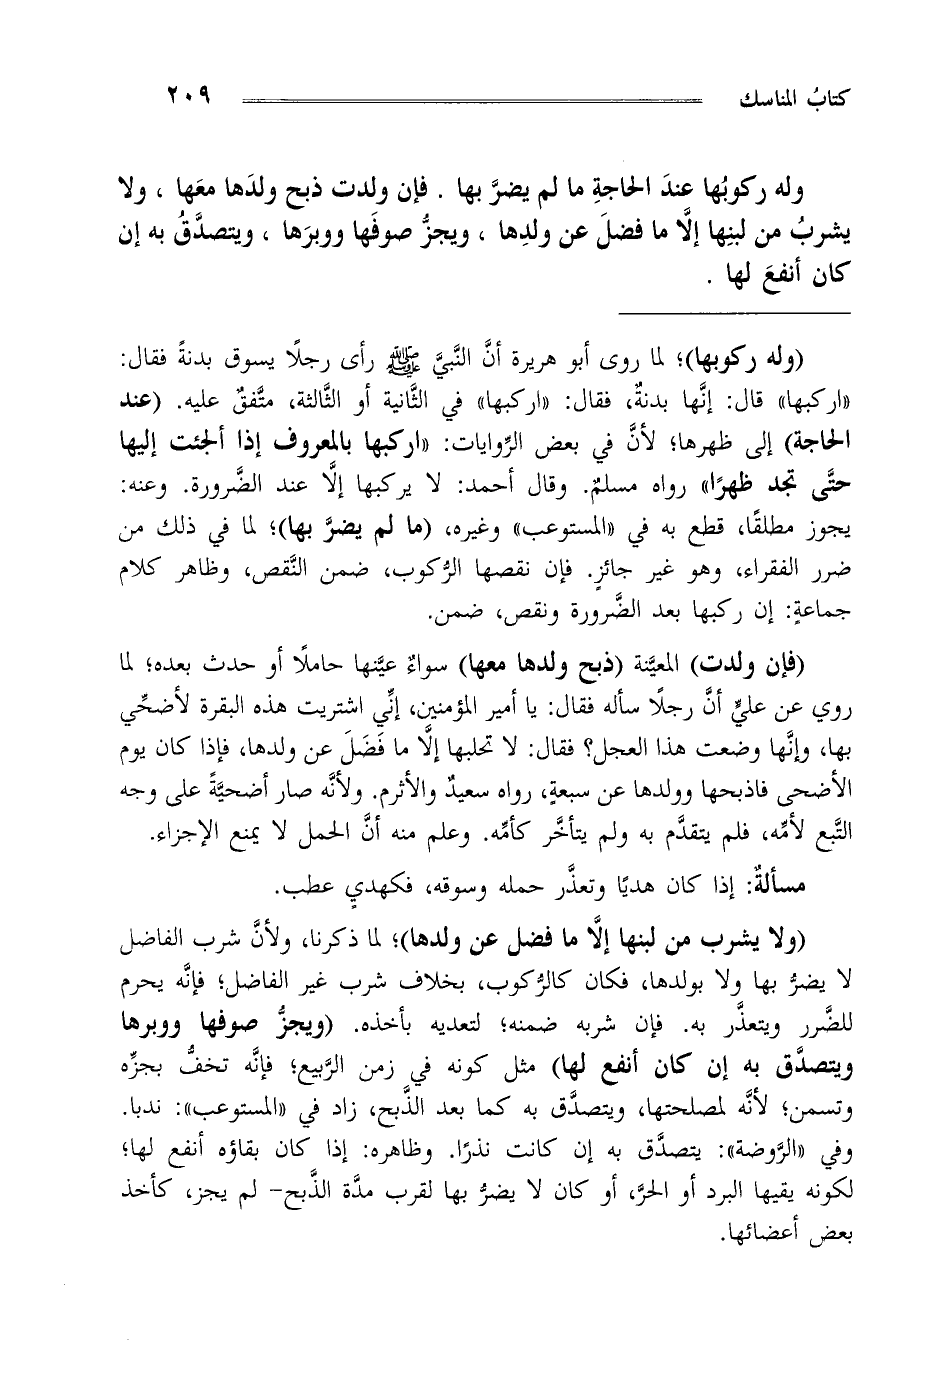 كتابُ المناسك ٢٠٩
وله ركوبُها عندَ الحاجةِ ما لم يضرَّ بها . فإن ولدت ذبح ولدَها معَها ، ولا
يشربُ من لبنِها إلَّا ما فضلَ عن ولدِها ، ويجزُّ صوفَها ووبرَها ، ويتصدَّقُ به إن
كان أنفعَ لها .
(وله ركوبها)؛ لما روى أبو هريرة أنَّ النَّبيَّ ﷺ رأى رجلًا يسوق بدنةً فقال:
«اركبها» قال: إنَّها بدنةٌ، فقال: «اركبها» في الثَّانية أو الثَّالثة، متَّفقٌ عليه. (عند
الحاجة) إلى ظهرها؛ لأنَّ في بعض الرِّوايات: «اركبها بالمعروف إذا ألجئت إليها
حتَّى تجد ظهرًا» رواه مسلمٌ. وقال أحمد: لا يركبها إلَّا عند الضَّرورة. وعنه:
يجوز مطلقًا، قطع به في «المستوعب» وغيره، (ما لم يضرَّ بها)؛ لما في ذلك من
ضرر الفقراء، وهو غير جائزٍ. فإن نقصها الرُّكوب، ضمن النَّقص، وظاهر كلام
جماعةٍ: إن ركبها بعد الضَّرورة ونقص، ضمن.
(فإن ولدت) المعيَّنة (ذبح ولدها معها) سواءٌ عيَّنها حاملًا أو حدث بعده؛ لما
روي عن عليٍّ أنَّ رجلًا سأله فقال: يا أمير المؤمنين، إنِّي اشتريت هذه البقرة لأضحِّي
بها، وإنَّها وضعت هذا العجل؟ فقال: لا تحلبها إلَّا ما فَضَلَ عن ولدها، فإذا كان يوم
الأضحى فاذبحها وولدها عن سبعةٍ، رواه سعيدٌ والأثرم. ولأنَّه صار أضحيَّةً على وجه
التَّبع لأمِّه، فلم يتقدَّم به ولم يتأخَّر كأمِّه. وعلم منه أنَّ الحمل لا يمنع الإجزاء.
مسألةٌ: إذا كان هديًا وتعذَّر حمله وسوقه، فكهديٍ عطب.
(ولا يشرب من لبنها إلَّا ما فضل عن ولدها)؛ لما ذكرنا، ولأنَّ شرب الفاضل
لا يضرُّ بها ولا بولدها، فكان كالرُّكوب، بخلاف شرب غير الفاضل؛ فإنَّه يحرم
للضَّرر ويتعذَّر به. فإن شربه ضمنه؛ لتعديه بأخذه. (ويجزُّ صوفها ووبرها
ويتصدَّق به إن كان أنفع لها) مثل كونه في زمن الرَّبيع؛ فإنَّه تخفُّ بجزِّه
وتسمن؛ لأنَّه لمصلحتها، ويتصدَّق به كما بعد الذَّبح، زاد في «المستوعب»: ندبا.
وفي «الرَّوضة»: يتصدَّق به إن كانت نذرًا. وظاهره: إذا كان بقاؤه أنفع لها؛
لكونه يقيها البرد أو الحرَّ، أو كان لا يضرُّ بها لقرب مدَّة الذَّبح- لم يجز، كأخذ
بعض أعضائها.